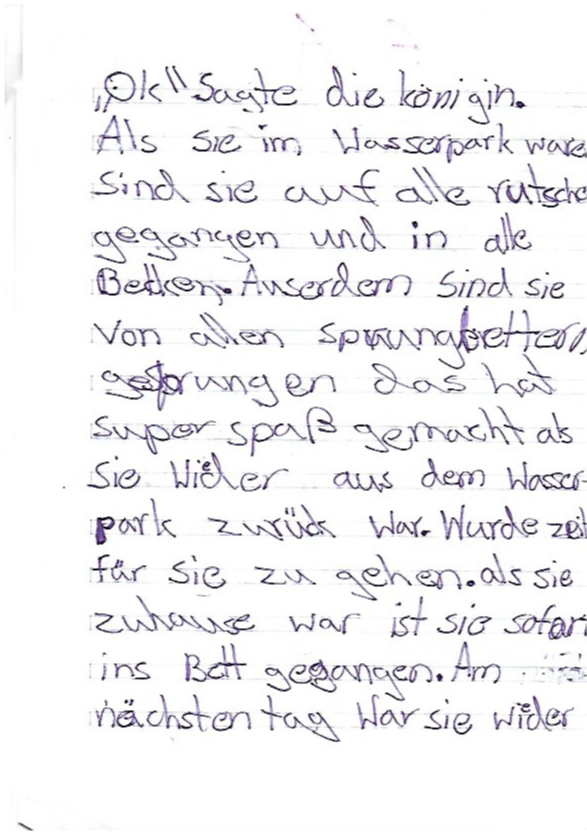 „Ok" Sagte die königin.
Als sie im Wasserpark ware
Sind sie auf alle rutsche
gegangen und in alle
Becken. Auserdem Sind sie
Von allen sprungbettern
gesprungen das hat
super spaß gemacht als
Sie Wider aus dem Wasser-
park zurück War. Wurde zeit
für Sie zu gehen. als sie
zuhause war ist sie sofort
ins Bett gegangen. Am
nächsten tag War sie wider